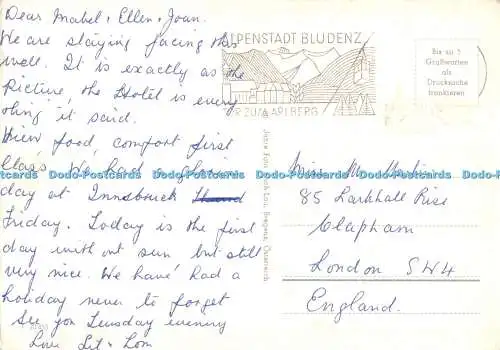 Dear Mabel + Ellen + Joan.
We are staying facing this
well. It is exactly as the
Picture, the Hotel is every
thing it said.
View food, comfort first
Class. We had a
day at Innsbruck
Friday. Today is the first
day without sun but still
very nice. We have had a
holiday never to forget
See you Tuesday evening
Love Lit + Tom
ALPENSTADT BLUDENZ
TOR ZUM ARLBERG
Bis zu 5
Grußworten
als
Drucksache
frankieren
Miss M.
85 Larkhall Rise
Clapham
London SW4
England.
Dodo-Postcards Dodo-Postcards Dodo-Postcards Dodo-Postcards